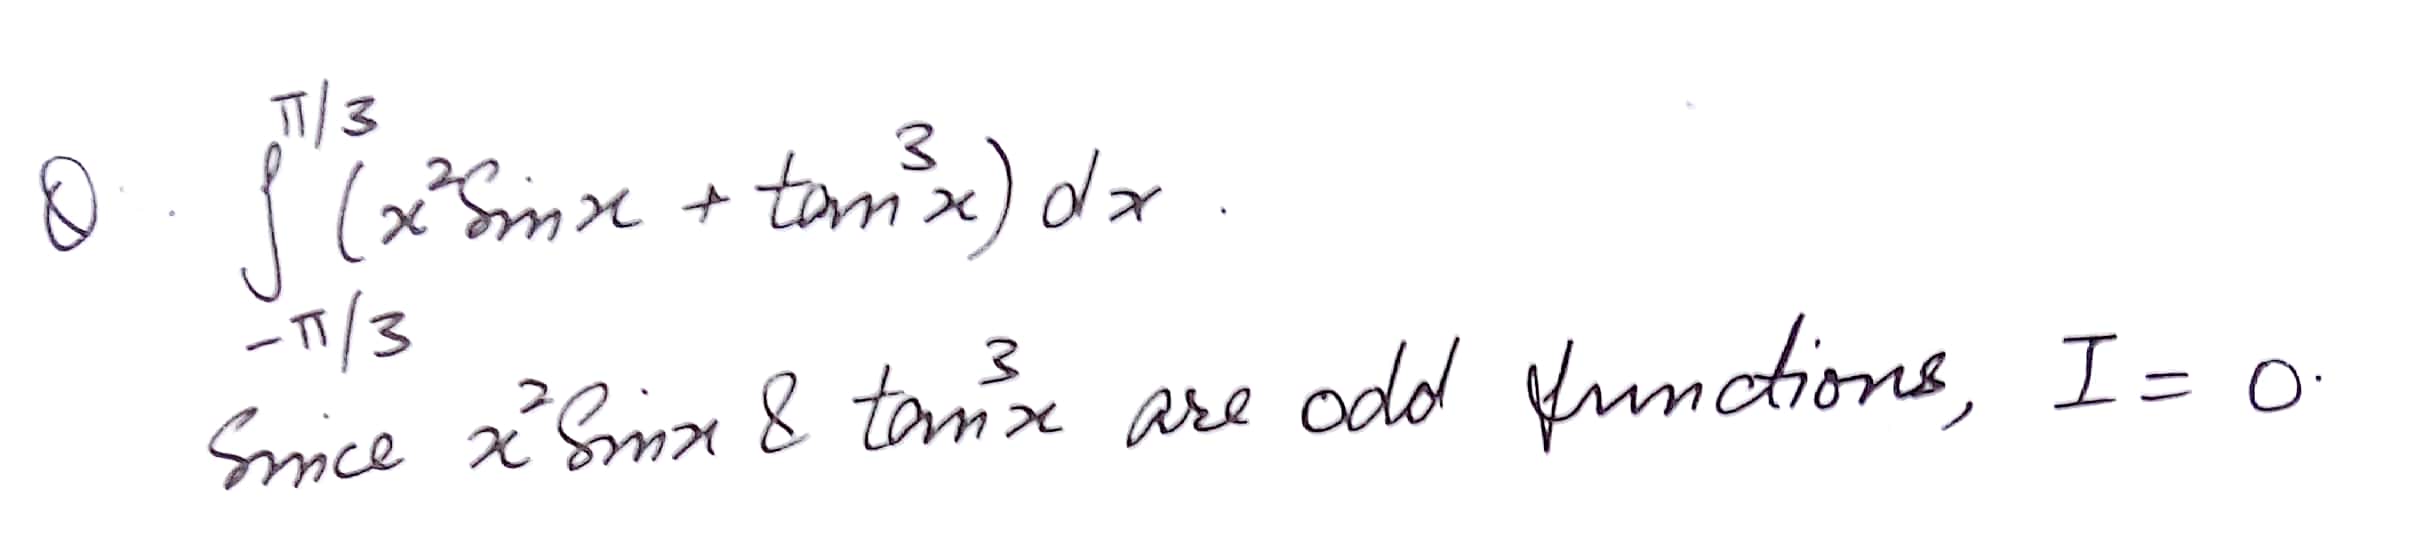 Q. ∫_{-π/3}^{π/3} (x² Sin x + tan³x) dx.
Since x² Sin x & tan³x are odd functions, I = 0.